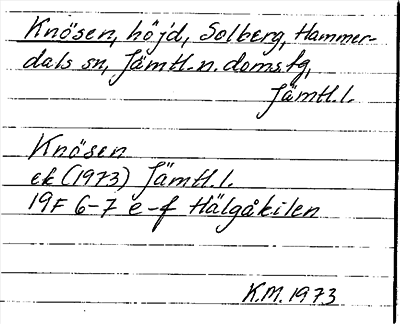 Knösen, höjd, Solberg, Hammer-
dals sn, Jämtl. n. doms.fg,
Jämtl.l.
Knösen
ek (1973) Jämtl.l.
19F 6-7 e-f Hälgåkilen
K.M. 1973